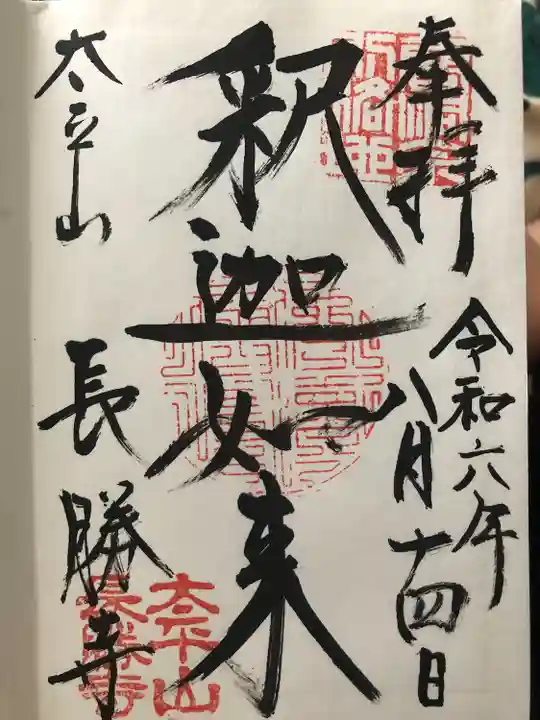 奉拝
令和六年
八月十四日
釈迦如来
太平山
長勝寺
太平山
長勝寺